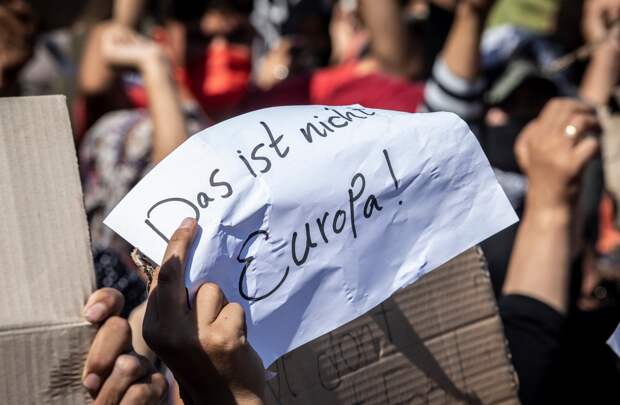 Das ist nicht
Europa!